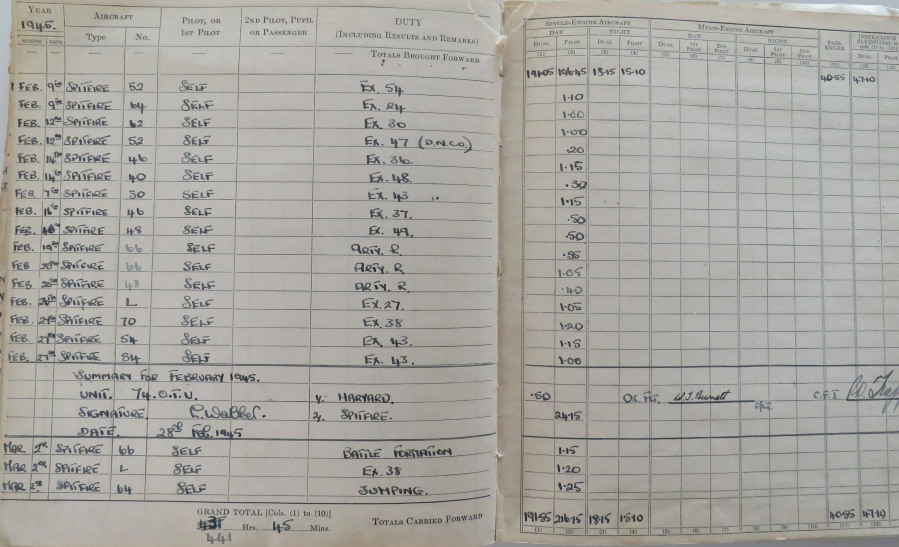 YEAR AIRCRAFT PILOT, OR 2ND PILOT, PUPIL DUTY
1945. 1ST PILOT OR PASSENGER (INCLUDING RESULTS AND REMARKS)
MONTH DATE Type No.
— — — — — TOTALS BROUGHT FORWARD
FEB. 9th SPITFIRE 52 SELF EX. 54
FEB. 9th SPITFIRE 64 SELF EX. 24
FEB. 12th SPITFIRE 62 SELF EX. 30
FEB. 12th SPITFIRE 52 SELF EX. 47 (D.N.CO.)
FEB. 14th SPITFIRE 46 SELF EX. 36.
FEB. 14th SPITFIRE 40 SELF EX. 48.
FEB SPITFIRE 30 SELF EX. 43
FEB. 16th SPITFIRE 46 SELF EX. 37.
FEB. SPITFIRE 48 SELF EX. 49.
FEB. 19th SPITFIRE 66 SELF ARTY. R
FEB 20th SPITFIRE 66 SELF ARTY. R
FEB SPITFIRE 48 SELF ARTY. R
FEB. SPITFIRE L SELF EX. 27.
FEB. SPITFIRE 70 SELF EX. 38
FEB. 27th SPITFIRE 54 SELF EX. 43.
FEB. 27th SPITFIRE 54 SELF EX. 43.
SUMMARY FOR FEBRUARY 1945.
UNIT. 74. O.T.U. 1/. HARVARD.
SIGNATURE. 2/. SPITFIRE.
DATE. 28th FEB. 1945
MAR. 2nd SPITFIRE 66 SELF BATTLE FORMATION
MAR 2nd SPITFIRE L SELF EX. 38
MAR 2nd SPITFIRE 64 SELF JUMPING.
GRAND TOTAL [Cols. (1) to (10)]
Hrs. 45 Mins. TOTALS CARRIED FORWARD
441
SINGLE-ENGINE AIRCRAFT MULTI-ENGINE AIRCRAFT
DAY NIGHT DAY NIGHT PASSENGER
DUAL PILOT DUAL PILOT DUAL 1ST PILOT 2ND PILOT DUAL 1ST PILOT 2ND PILOT DUAL PILOT
(1) (2) (3) (4) (5) (6) (7) (8) (9) (10) (11) (12) (13)
191.05 196.45 18.15 15.10 40.55 47.10
1.10
1.00
1.00
.20
1.15
.30
1.15
.50
.50
.55
1.05
.40
1.05
1.20
1.15
1.00
.50 O.C. W.J. Burnett F/Lt. C.F.I.
24.15
1.15
1.20
1.25
191.55 216.15 18.15 15.10 40.55 47.10
(1) (2) (3) (4) (5) (6) (7) (8) (9) (10) (11) (12)